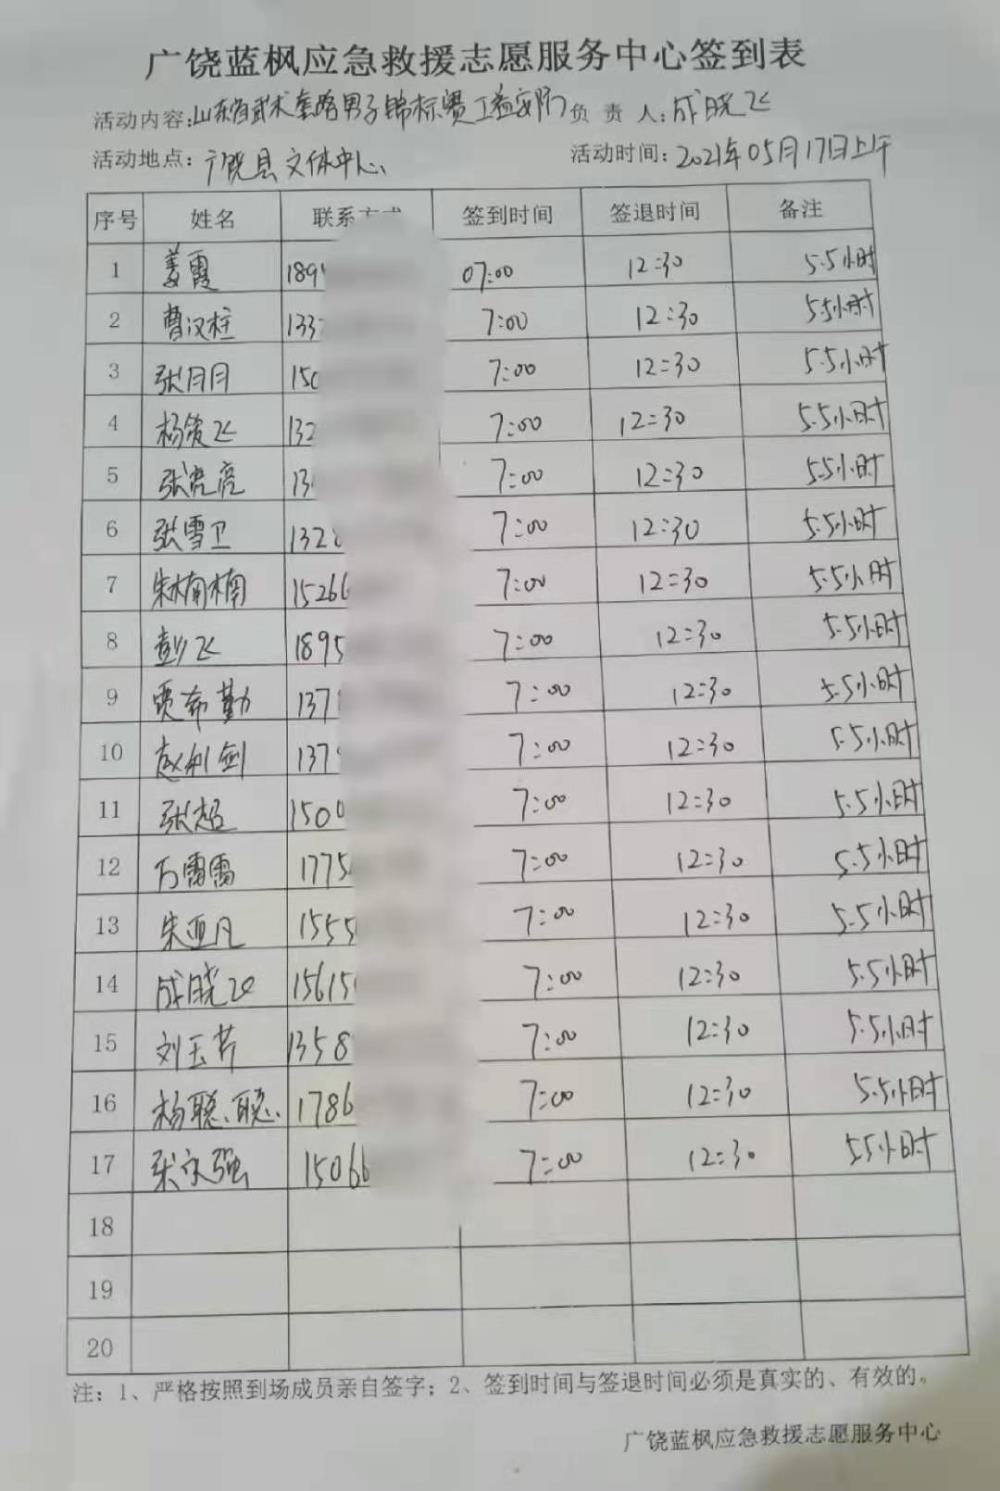 广饶蓝枫应急救援志愿服务中心签到表
活动内容:山东省武术套路男子锦标赛公益安防 负 责 人:成晓飞
活动地点:广饶县文体中心 活动时间:2021年05月17日上午
序号 姓名 联系方式 签到时间 签退时间 备注
1 姜霞 189 07:00 12:30 5.5小时
2 曹汉柱 133 7:00 12:30 5.5小时
3 张月月 150 7:00 12:30 5.5小时
4 杨 飞 132 7:00 12:30 5.5小时
5 张亮亮 13 7:00 12:30 5.5小时
6 张雪卫 1328 7:00 12:30 5.5小时
7 朱楠楠 15266 7:00 12:30 5.5小时
8 彭飞 1895 7:00 12:30 5.5小时
9 贾希勤 137 7:00 12:30 5.5小时
10 赵利剑 137 7:00 12:30 5.5小时
11 张超 1500 7:00 12:30 5.5小时
12 万雷雷 1775 7:00 12:30 5.5小时
13 朱亚凡 1555 7:00 12:30 5.5小时
14 成晓飞 15615 7:00 12:30 5.5小时
15 刘玉芹 1358 7:00 12:30 5.5小时
16 杨聪聪 1786 7:00 12:30 5.5小时
17 张文强 15066 7:00 12:30 5.5小时
18
19
20
注：1、严格按照到场成员亲自签字；2、签到时间与签退时间必须是真实的、有效的。
广饶蓝枫应急救援志愿服务中心